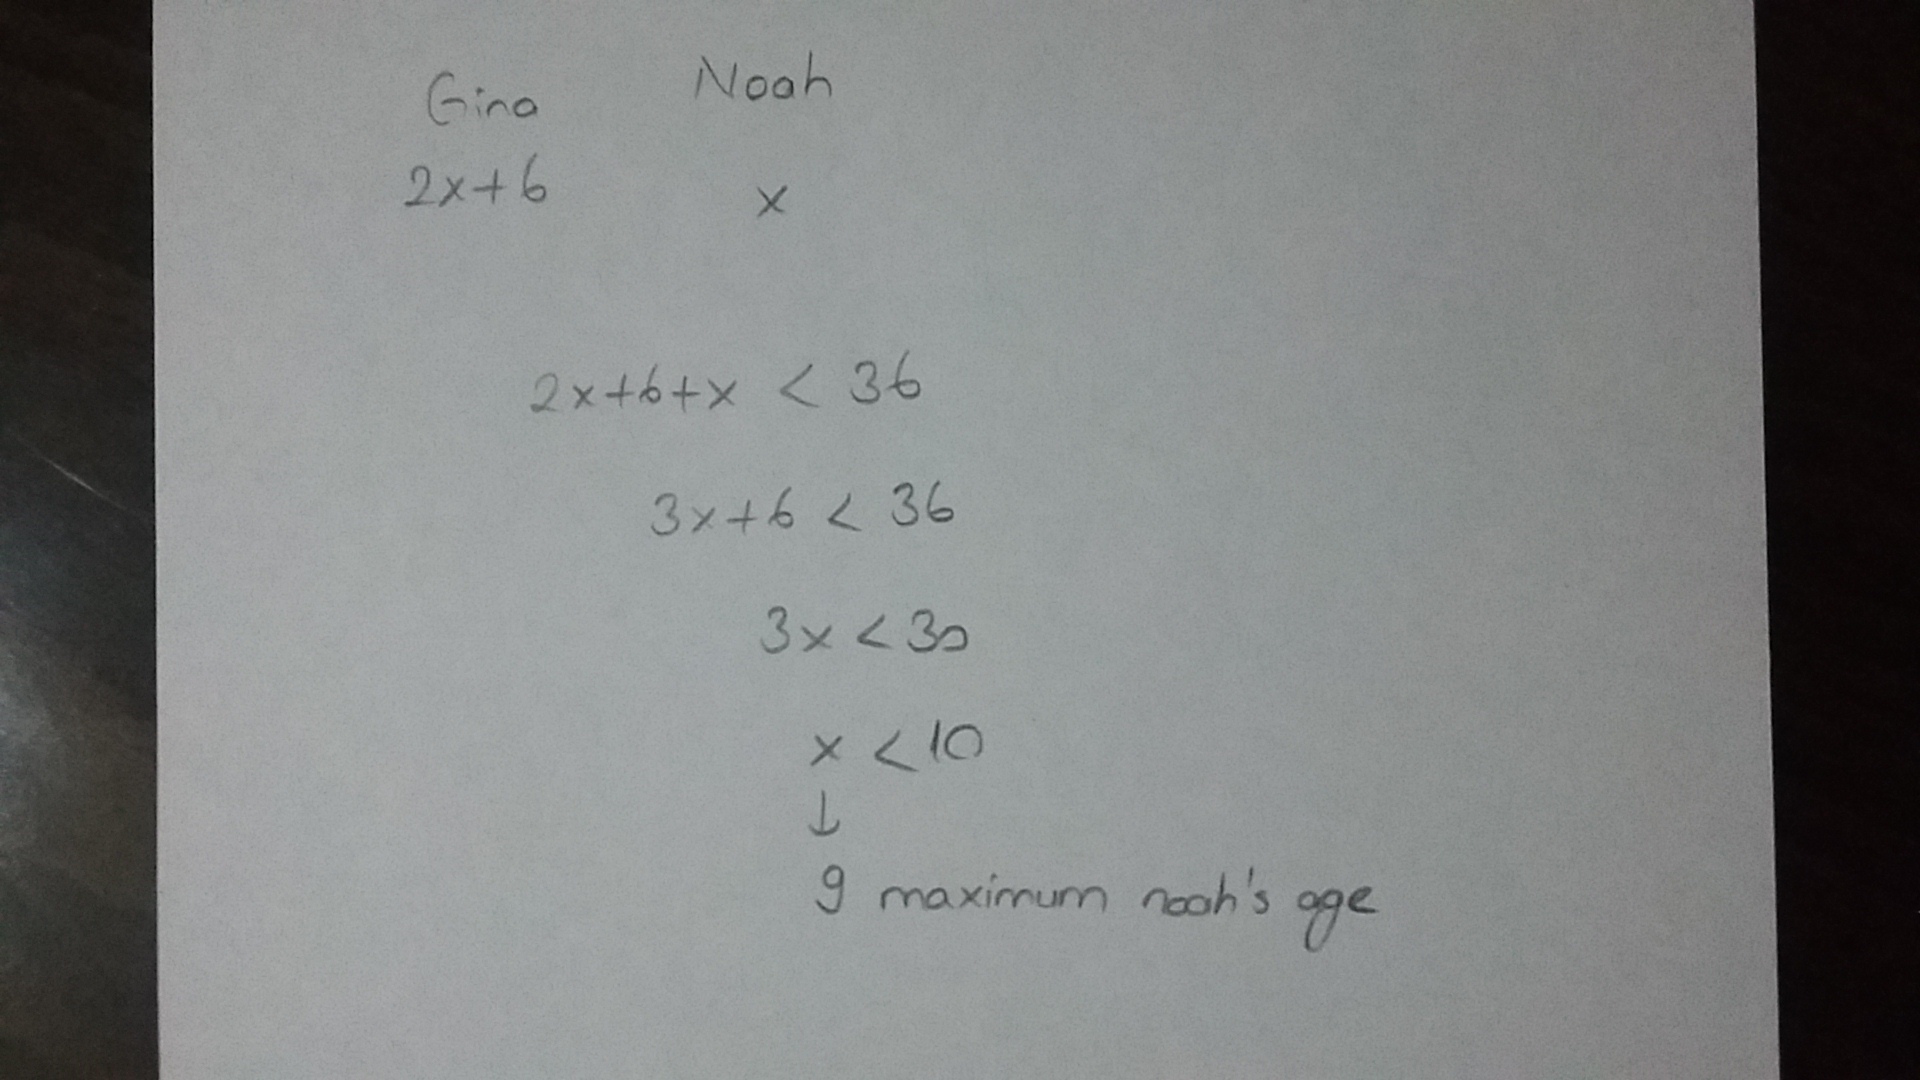 Gina Noah
2x+6 x
2x+6+x < 36
3x+6 < 36
3x < 30
x < 10
↓
9 maximum noah's age